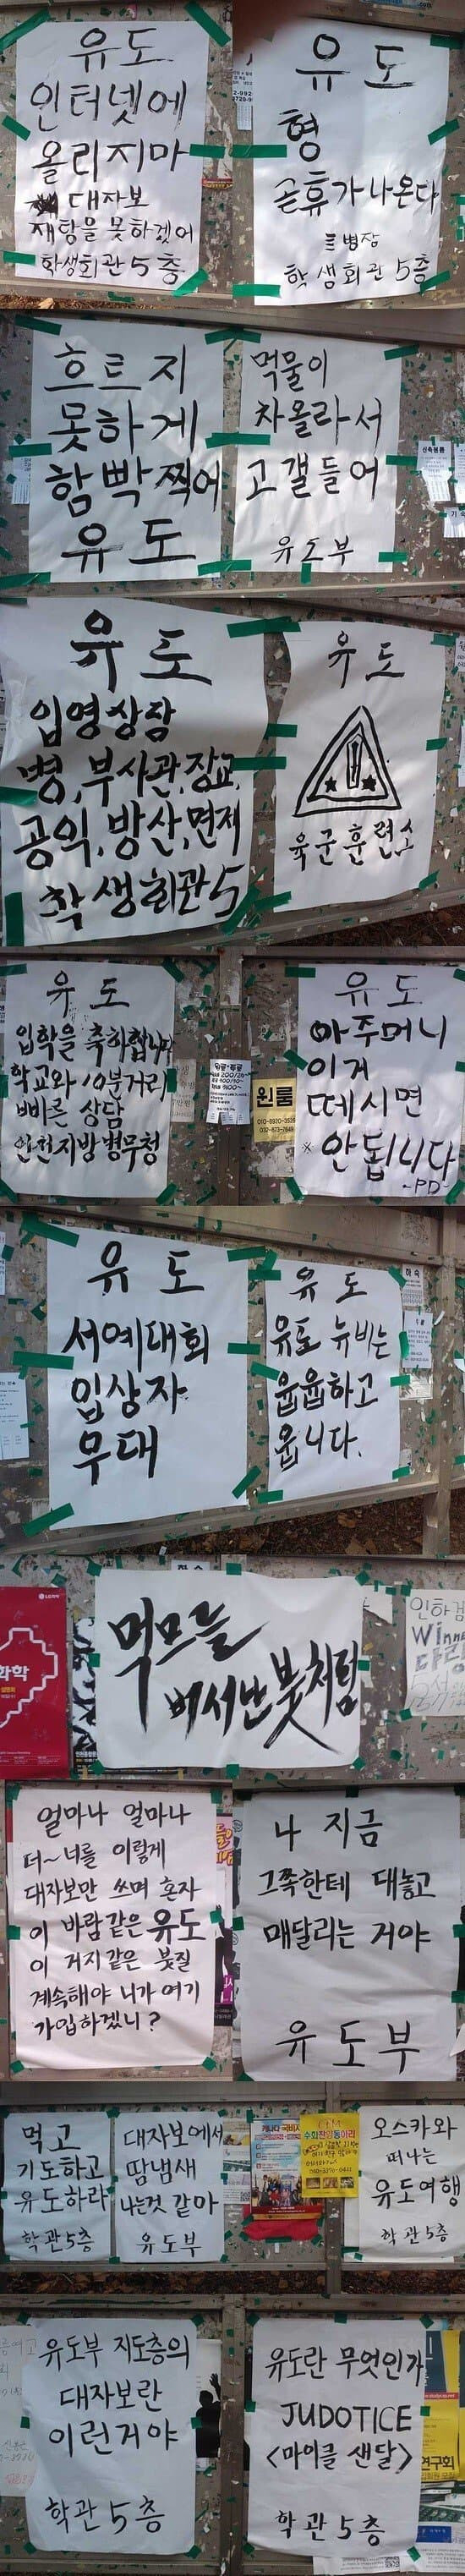 유도
인터넷에
올리지마
대자보
재탕을 못하겠어
학생회관 5층
유도
형
곧휴가나온다
병장
학생회관 5층
흐트지
못하게
함빡 찍어
유도
먹물이
차올라서
고갤들어
유도부
유도
입영상담
병,부사관,장교,
공익,방산,면제
학생회관5
유도
육군훈련소
유도
입학을 축하합니다
학교와 10분거리
빠른 상담
인천지방병무청
원룸
유도
아주머니
이거
떼시면
※ 안됩니다
~PD~
유도
서예대회
입상자
우대
유도
유도 뉴비는
웁웁하고
웁니다.
하숙
화학
먹므늘
벼서난 붓처럼
인하검
Winne
다랑
얼마나 얼마나
더~너를 이렇게
대자보만 쓰며 혼자
이 바람같은 유도
이 거지같은 붓질
계속해야 니가 여기
가입하겠니?
나 지금
그쪽한테 대놓고
매달리는 거야
유도부
먹고
기도하고
유도하라
학관5층
대자보에서
땀냄새
나는것 같아
유도부
오스카와
떠나는
유도여행
학관5층
유도부 지도층의
대자보란
이런거야
학관 5층
유도란 무엇인가
JUDOTICE
<마이클 샌달>
학관 5층
연구회